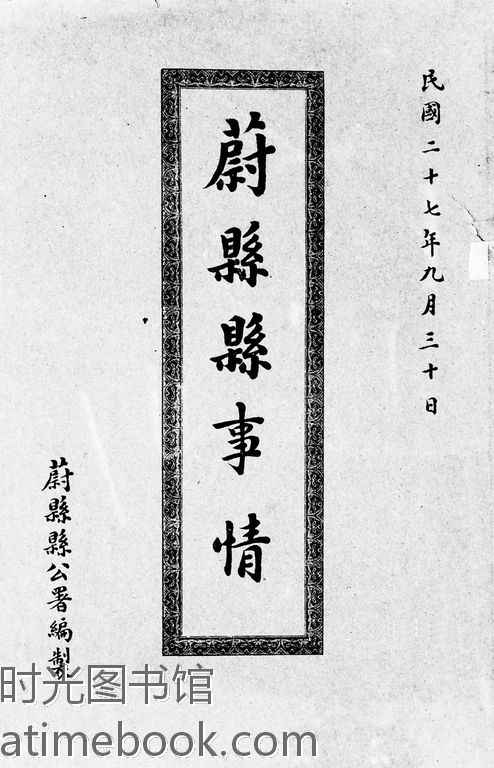 民國二十七年九月三十日
蔚縣縣事情
蔚縣縣公署編製
时光图书馆
atimebook.com